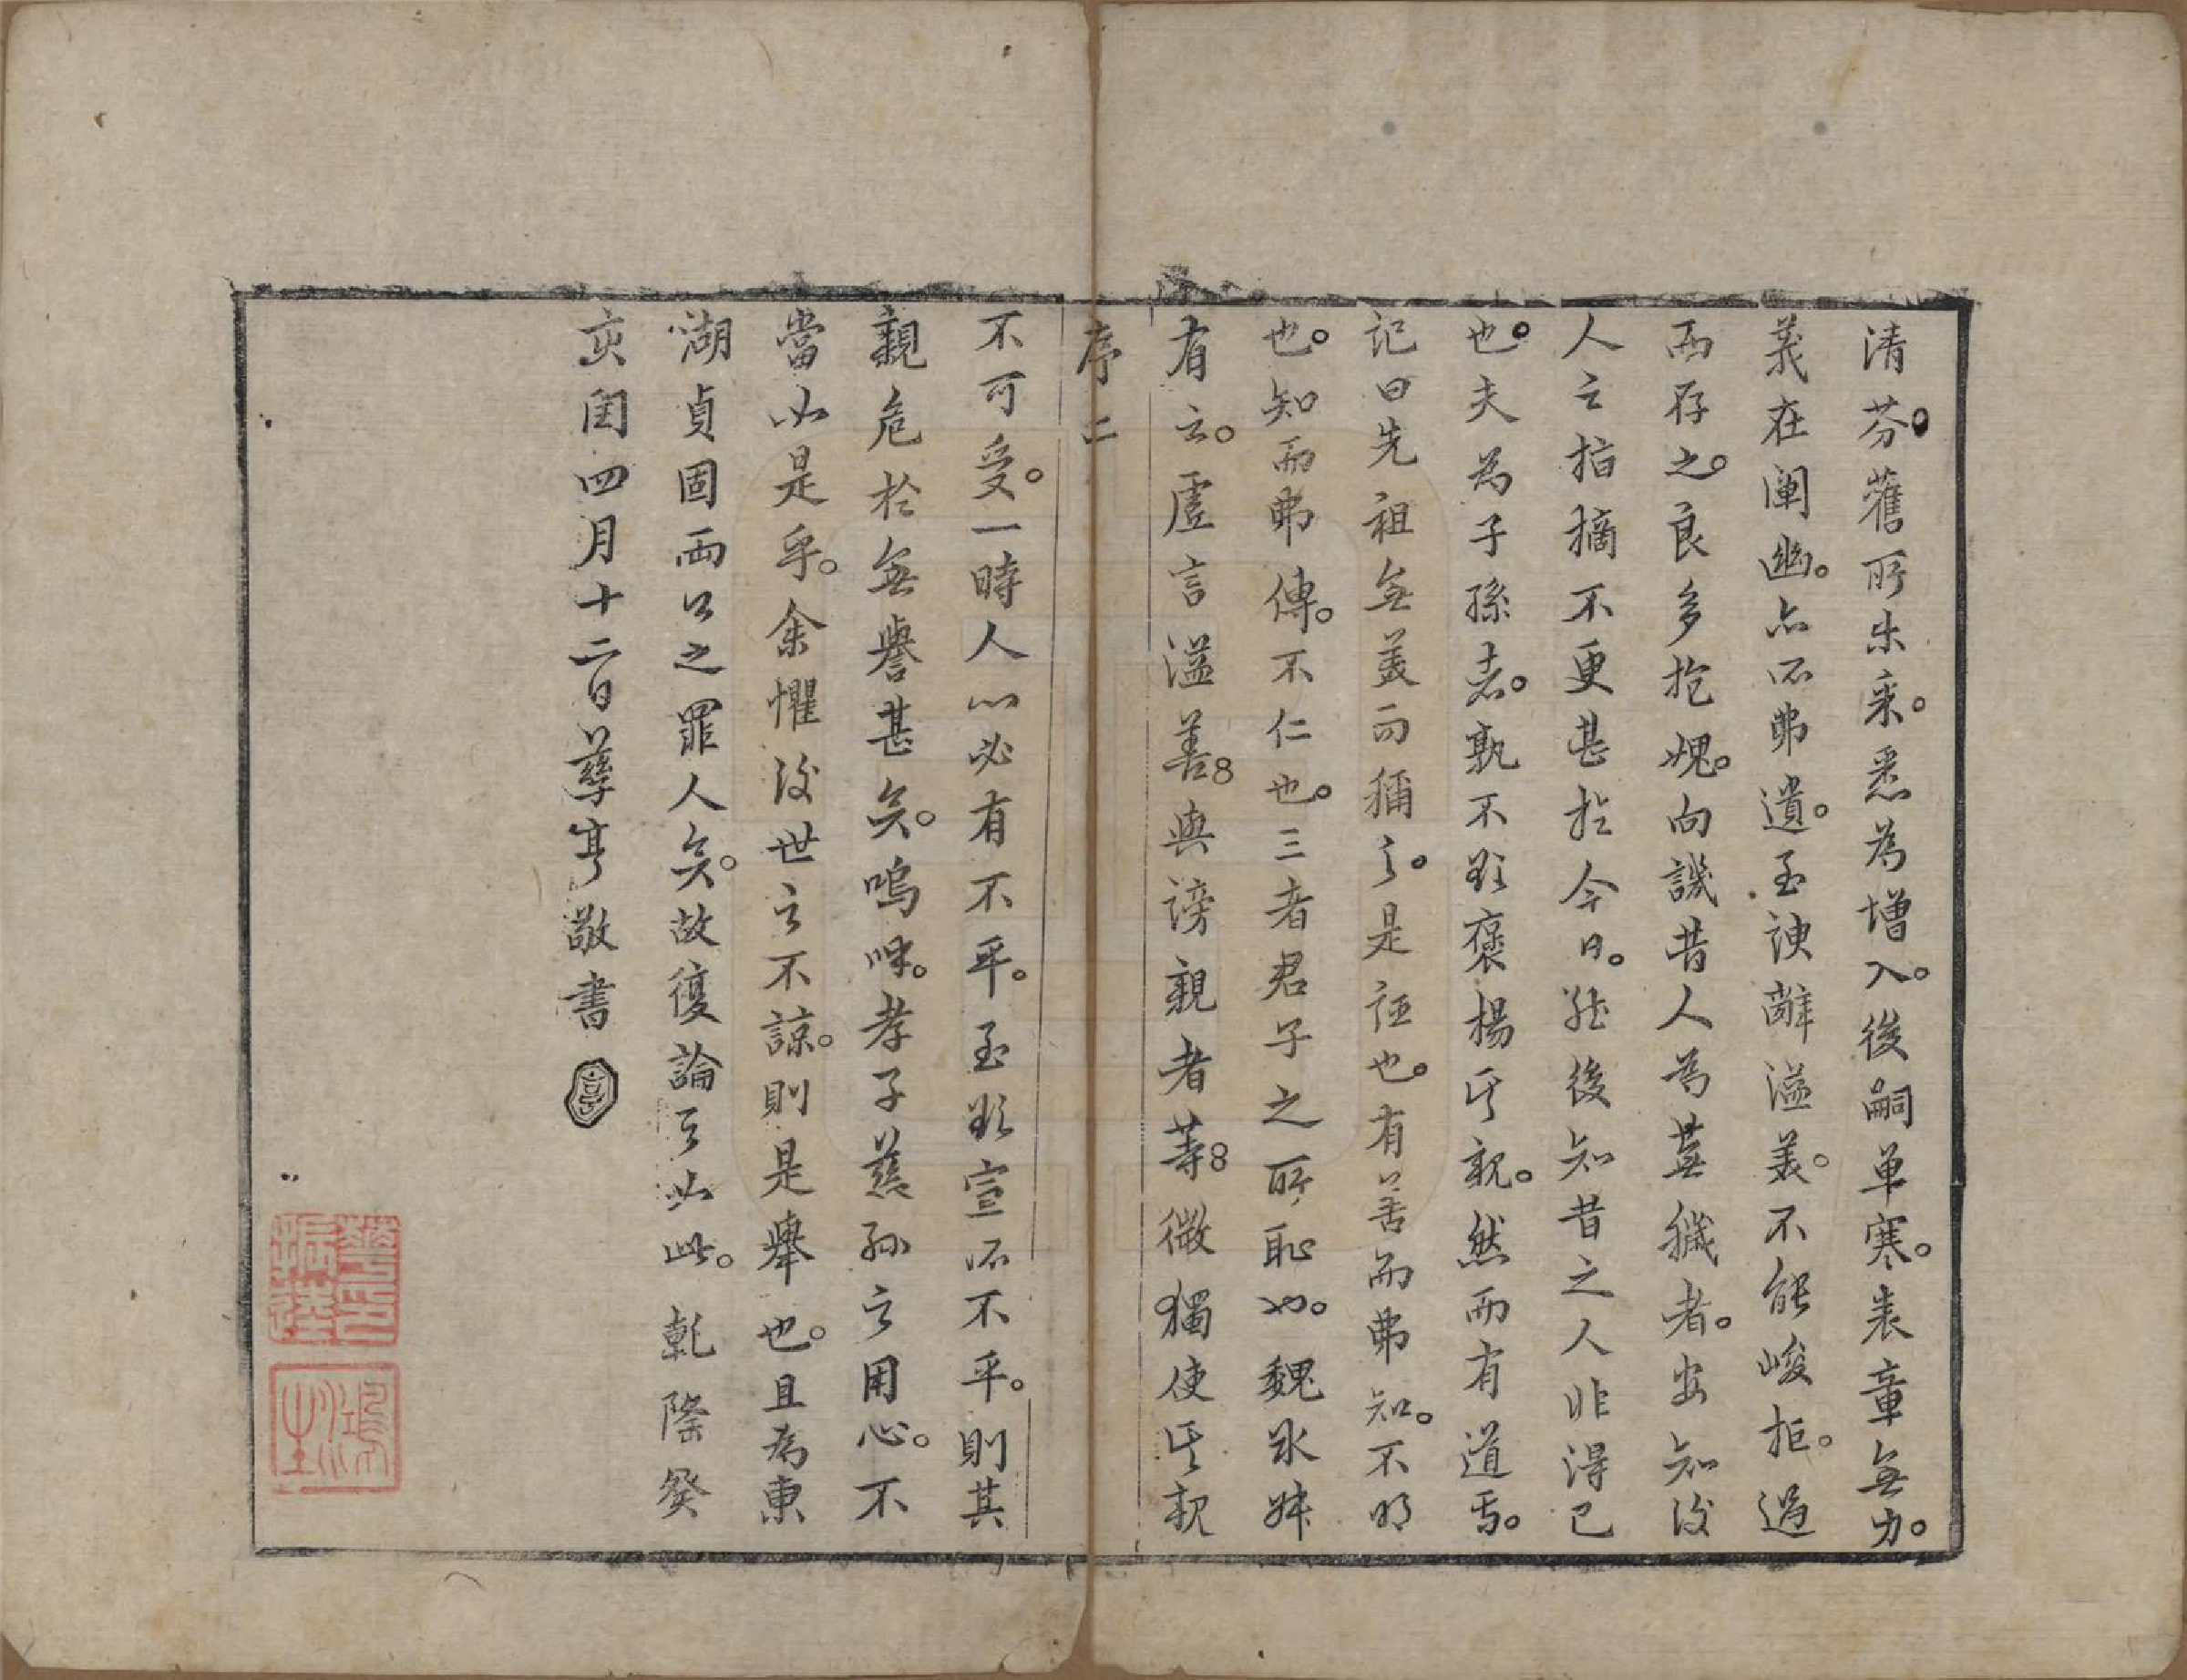 清芬。舊所未采。悉為增入。後嗣单寒。表章無力。
義在闡幽。亦不弗遺。至諛辭溢美。不能峻拒。過
而存之。良多抱媿。向譏昔人為蕪穢者。安知後
人之指摘不更甚於今日。然後知昔之人非得已
也。夫為子孫者。孰不欲褒揚其親。然而有道焉。
記曰先祖無美而稱之。是誣也。有善而弗知。不明
也。知而弗傳。不仁也。三者君子之所恥也。魏泉姊
有云。虛言溢善。與謗親者等。微獨使其親
序二
不可受。一時人心必有不平。至欲宣不平。則其
親危於無譽甚矣。嗚呼。孝子慈孫之用心。不
當如是乎。余懼後世之不諒。則是舉也。且為東
湖貞固兩公之罪人矣。故復論之如此。乾隆癸
亥閏四月十二日孳亨敬書